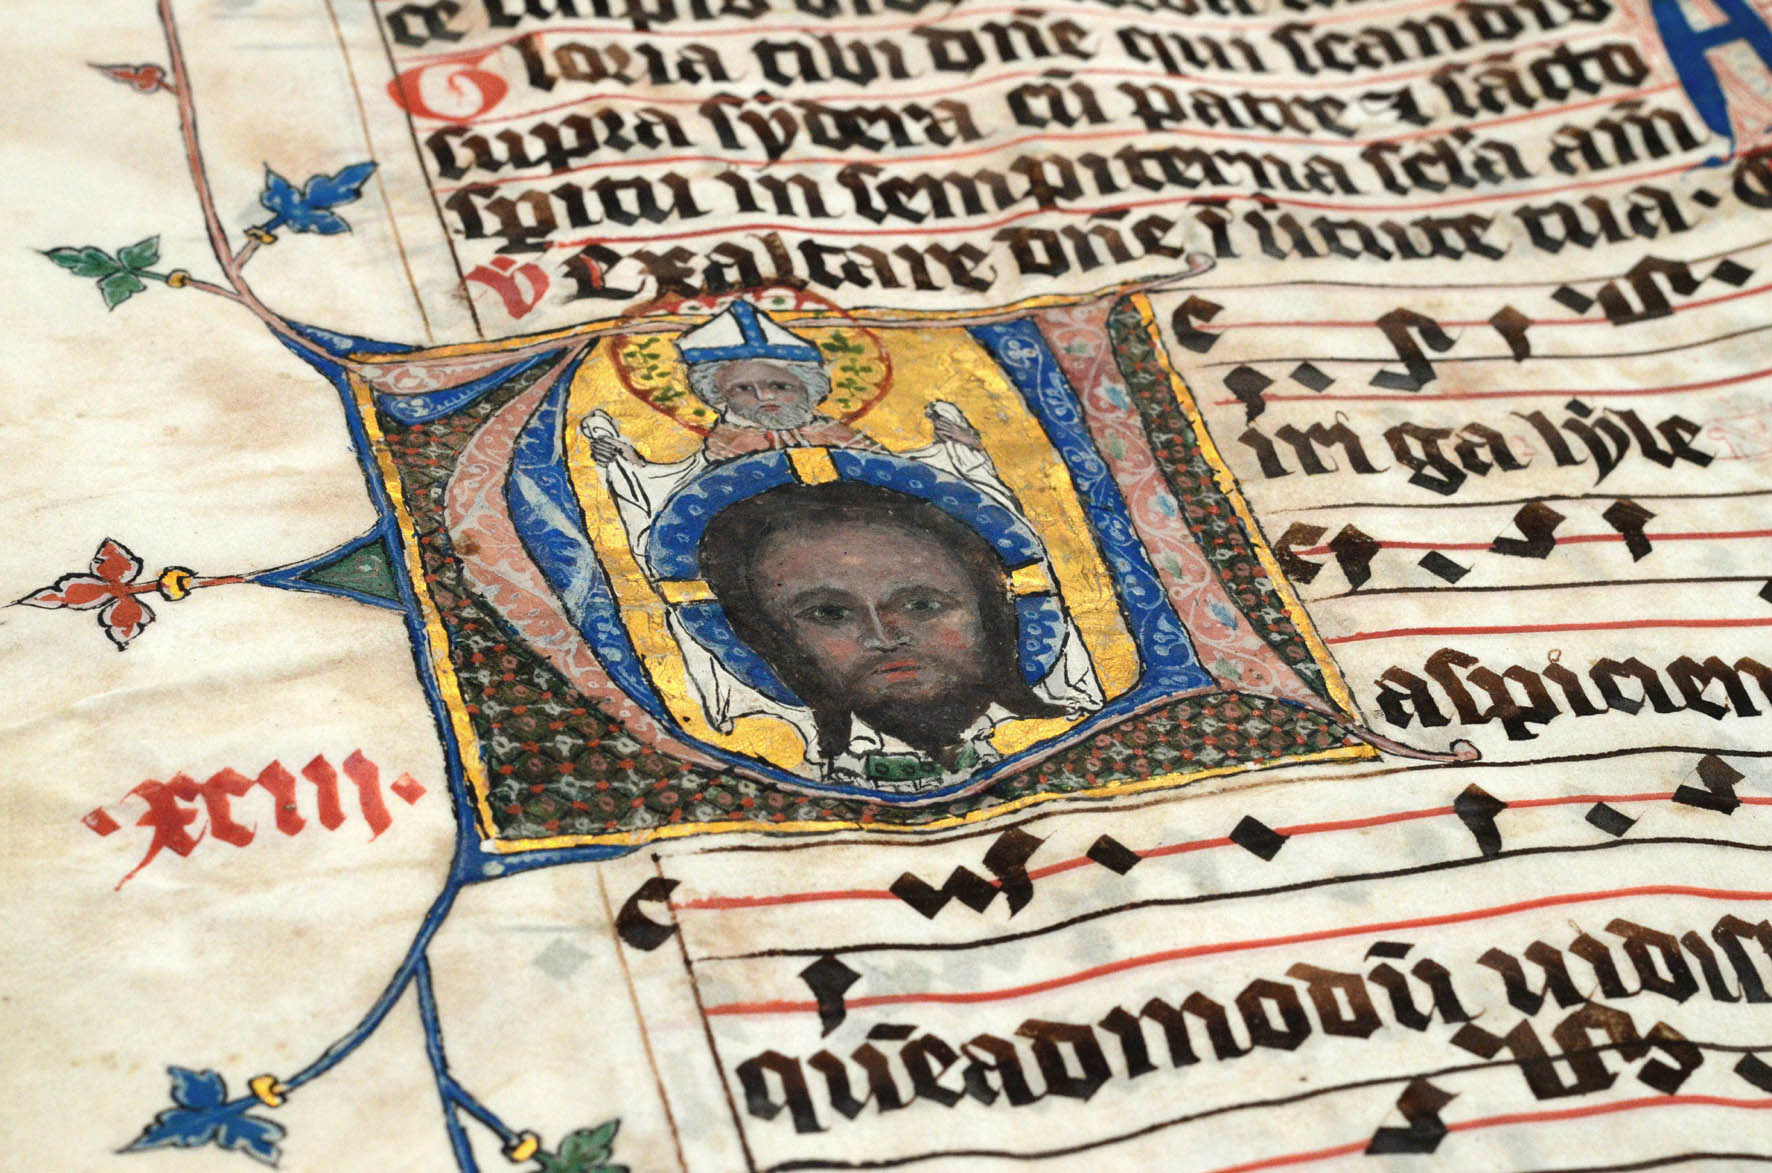 Gloria tibi dn̄e qui scandis
supra sÿdera cū patre ⁊ sācto
spiritu in sempiterna sēla am̄
V Exaltare dn̄e ī uirtute tua·
iri galÿle
aspicien
·xciii·
quēadmodū uidis